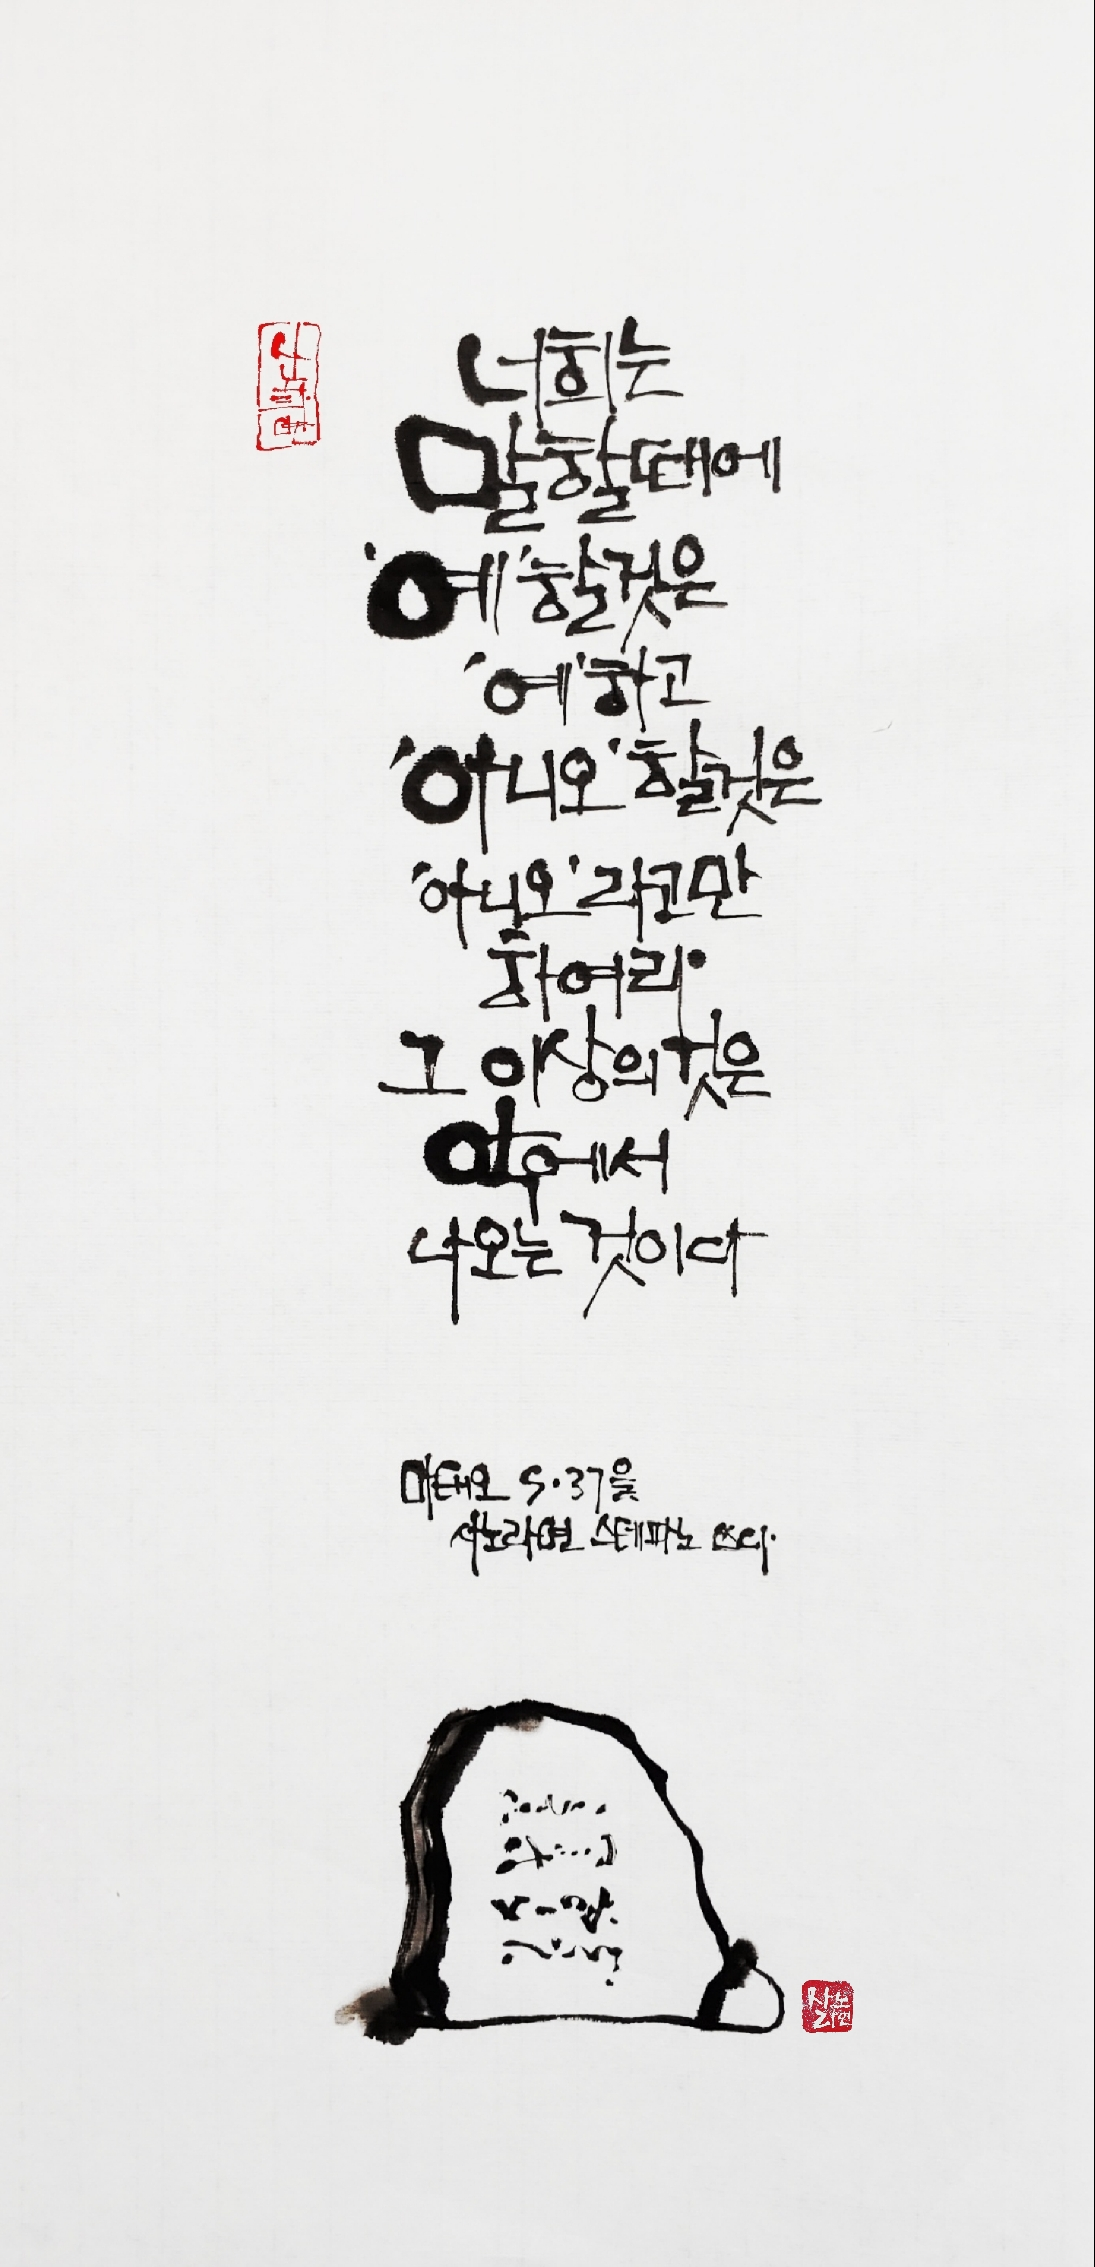 너희는
말할때에
'예'할것은
'예'하고
'아니오'할것은
'아니오'라고만
하여라.
그 이상의것은
악에서
나오는 것이다
마태오 5·37을
사노라면 스테파노 쓰다.
사노라면